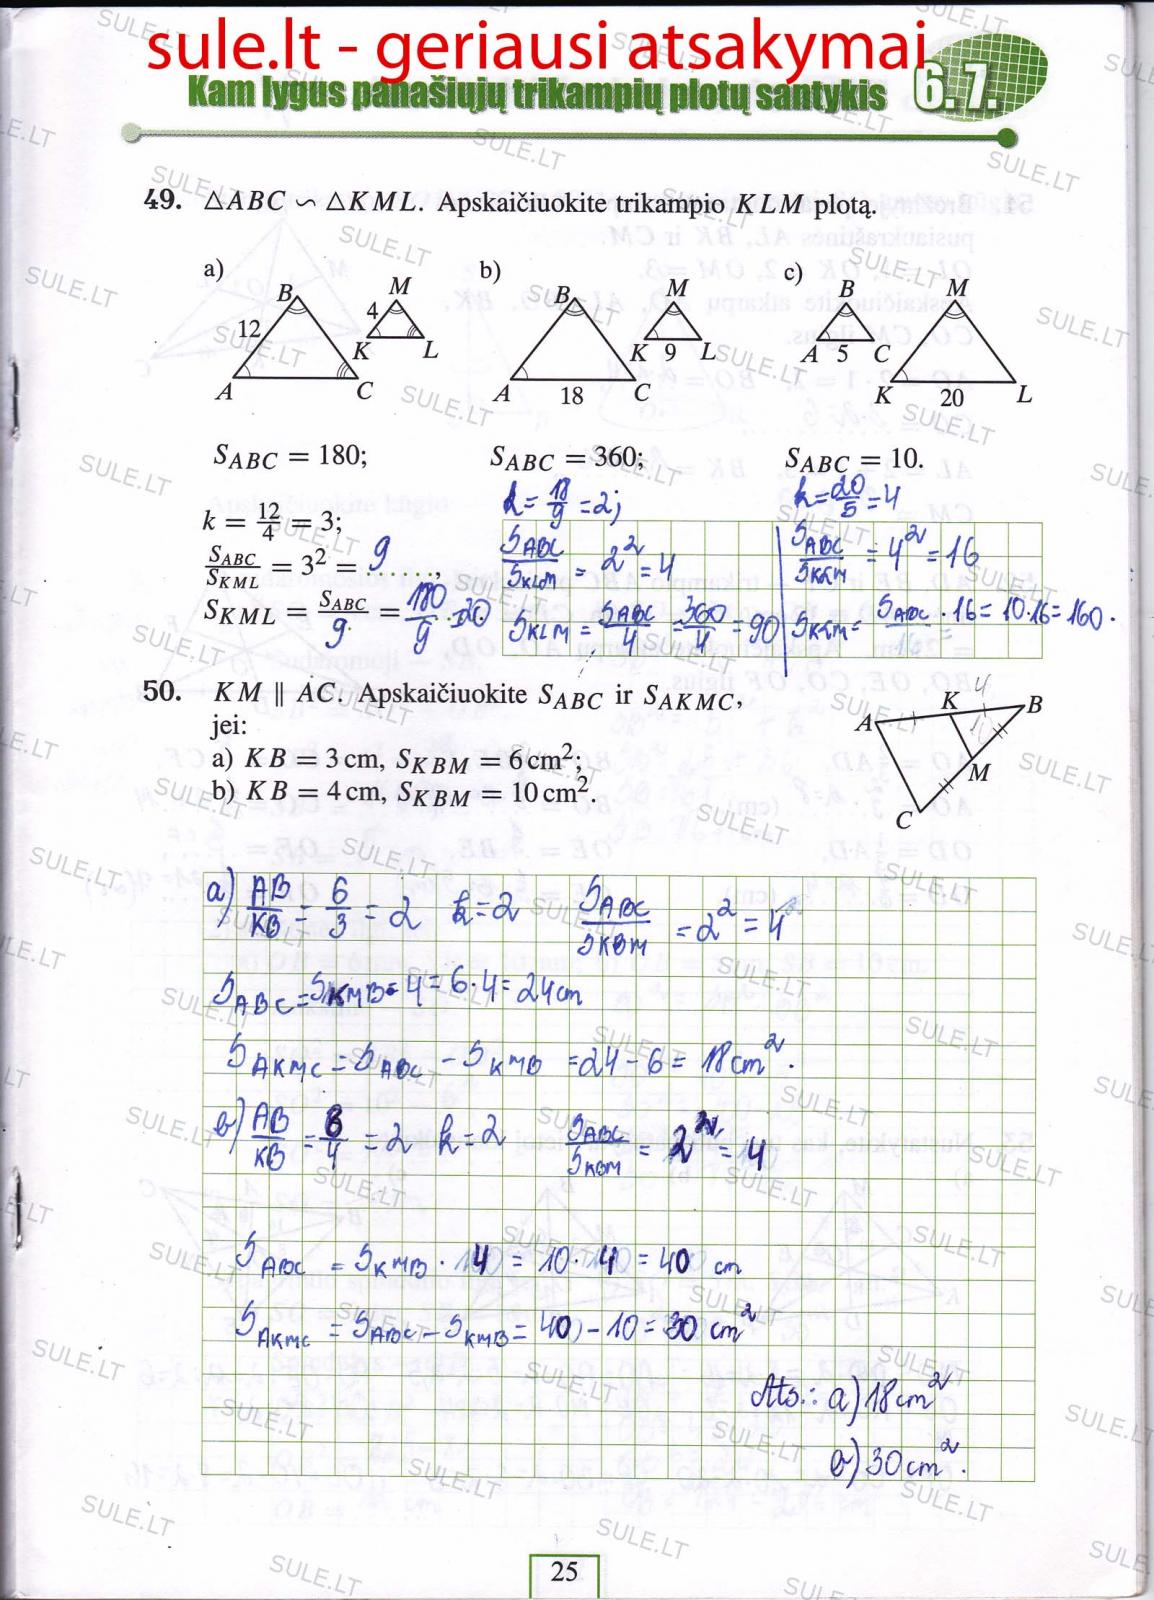 sule.lt - geriausi atsakymai
Kam lygus panašiųjų trikampių plotų santykis 6.7.
49. △ABC ∽ △KML. Apskaičiuokite trikampio KLM plotą.
a) b) c)
B M B M B M
12 4
A C K L A C K L A 5 C K L
18 9 20
S_ABC = 180; S_ABC = 360; S_ABC = 10.
k = 18/9 = 2; k = 20/5 = 4
k = 12/4 = 3;
S_ABC/S_KML = 3² = 9, S_ABC/S_KLM = 2² = 4 S_ABC/S_KLM = 4² = 16
S_KML = S_ABC/9 = 180/9 = 20 S_KLM = S_ABC/4 = 360/4 = 90 S_KLM = S_ABC · 16 = 10·16 = 160.
50. KM ∥ AC. Apskaičiuokite S_ABC ir S_AKMC,
jei:
a) KB = 3 cm, S_KBM = 6 cm²;
b) KB = 4 cm, S_KBM = 10 cm².
A K 4 B
M
C
a) AB/KB = 6/3 = 2 k = 2 S_ABC/S_KBM = 2² = 4
S_ABC = S_KMB · 4 = 6·4 = 24 cm
S_AKMC = S_ABC − S_KMB = 24 − 6 = 18 cm².
b) AB/KB = 8/4 = 2 k = 2 S_ABC/S_KBM = 2² = 4
S_ABC = S_KMB · 4 = 10 · 4 = 40 cm
S_AKMC = S_ABC − S_KMB = 40 − 10 = 30 cm²
Ats.: a) 18 cm²
b) 30 cm².
25
SULE.LT